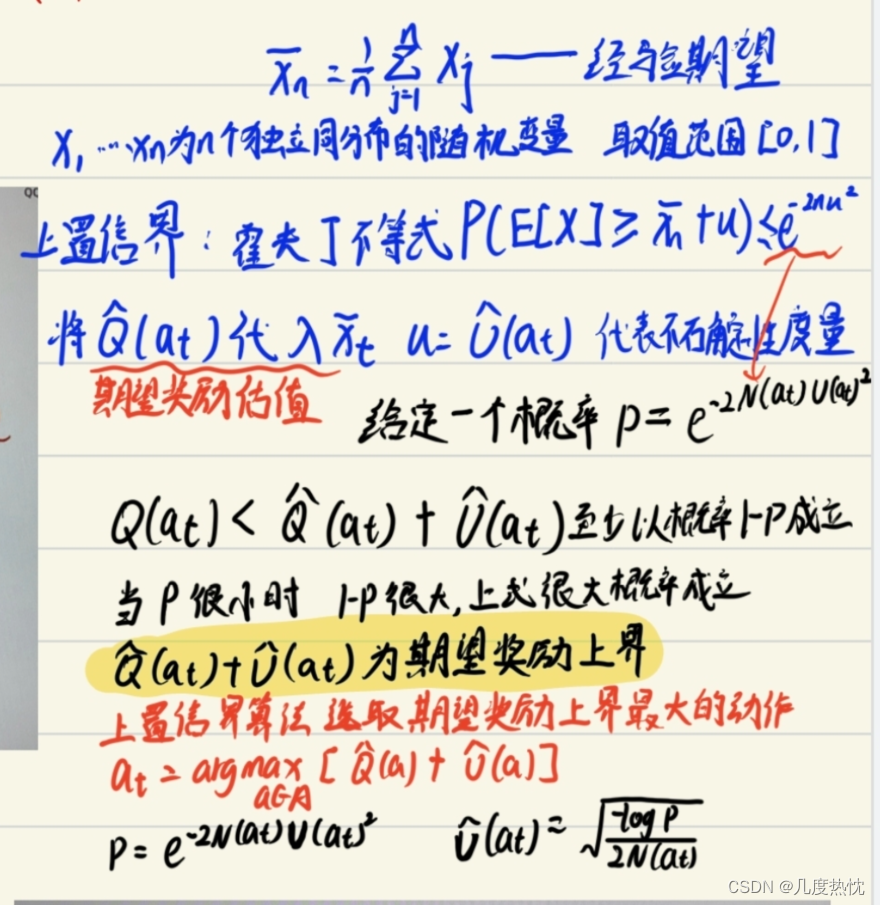 x̄n = 1/n Σ_{j=1}^{n} xj —— 经验期望
x1 ... xn为n个独立同分布的随机变量 取值范围[0,1]
QC
上置信界：霍夫丁不等式 P(E[X] ≥ x̄n + u) ≤ e^{-2nu²}
将 Q̂(at) 代入 x̄t u = Û(at) 代表不确定性度量
期望奖励估值
给定一个概率 p = e^{-2N(at)U(at)²}
Q(at) < Q̂(at) + Û(at) 至少以概率1-P成立
当 P 很小时 1-P很大,上式很大概率成立
Q̂(at) + Û(at) 为期望奖励上界
上置信界算法 选取期望奖励上界最大的动作
at = argmax_{a∈A} [Q̂(a) + Û(a)]
P = e^{-2N(at)U(at)²} Û(at) = √(-log P / 2N(at))
CSDN @几度热忱